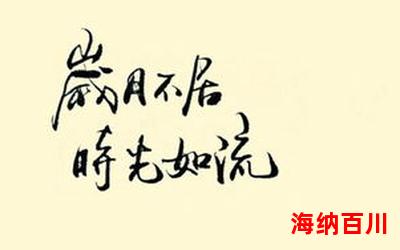 歲月不居
時光如流
海纳百川